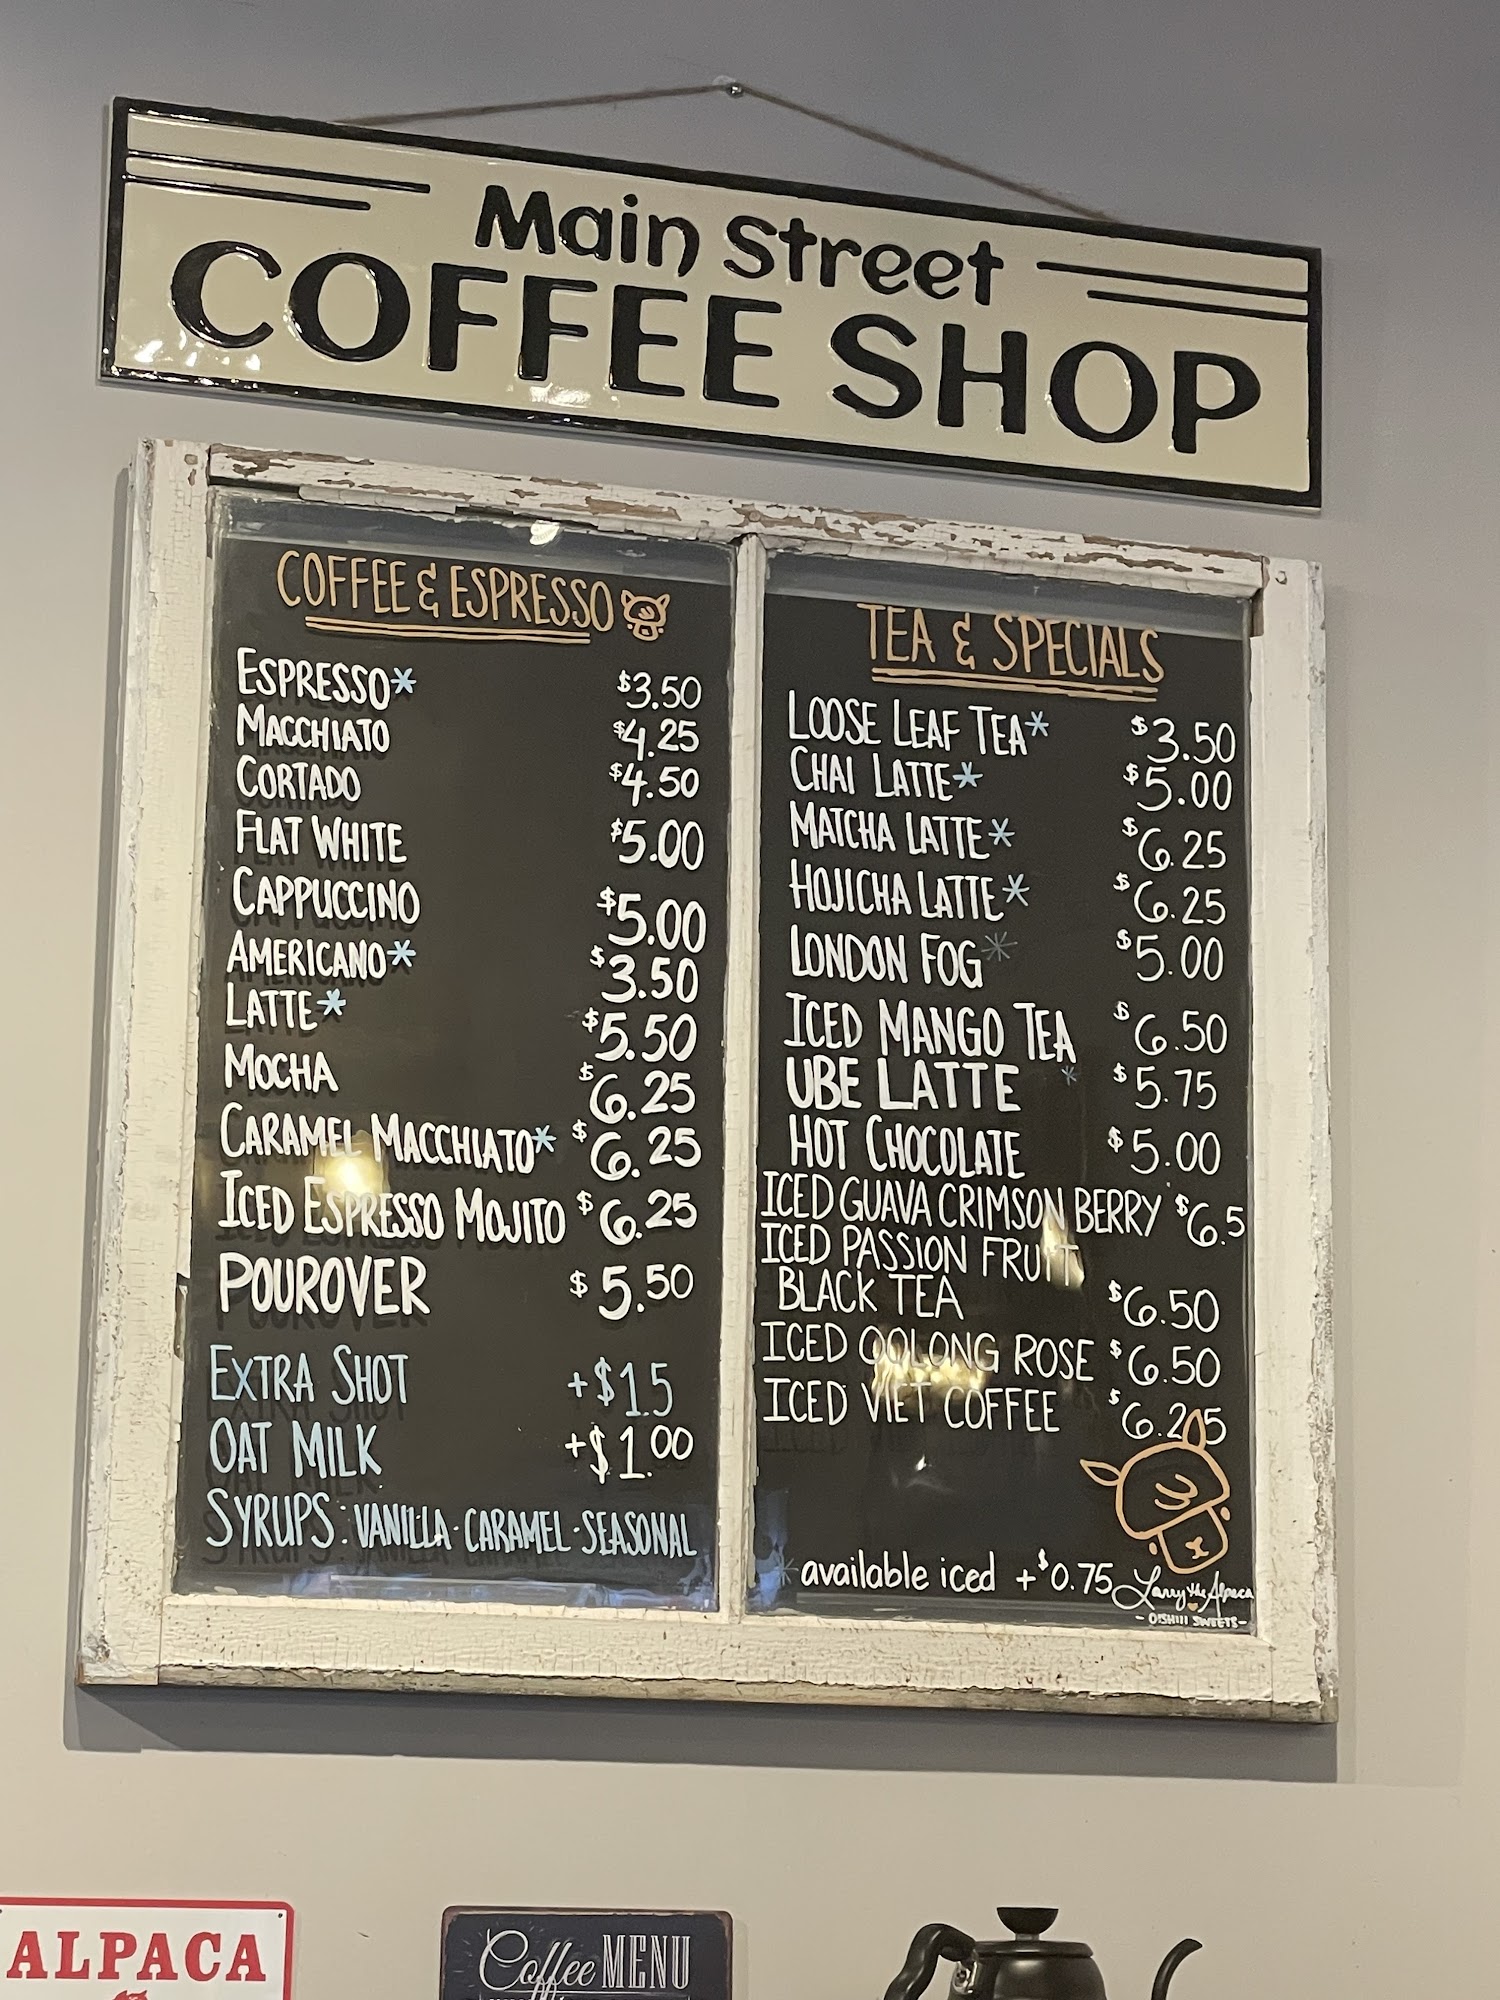 Main Street
COFFEE SHOP
COFFEE & ESPRESSO
ESPRESSO* $3.50
MACCHIATO $4.25
CORTADO $4.50
FLAT WHITE $5.00
CAPPUCCINO $5.00
AMERICANO* $3.50
LATTE* $5.50
MOCHA $6.25
CARAMEL MACCHIATO* $6.25
ICED ESPRESSO MOJITO $6.25
POUROVER $5.50
EXTRA SHOT +$1.5
OAT MILK +$1.00
SYRUPS: VANILLA · CARAMEL · SEASONAL
TEA & SPECIALS
LOOSE LEAF TEA* $3.50
CHAI LATTE* $5.00
MATCHA LATTE* $6.25
HOJICHA LATTE* $6.25
LONDON FOG* $5.00
ICED MANGO TEA $6.50
UBE LATTE * $5.75
HOT CHOCOLATE $5.00
ICED GUAVA CRIMSON BERRY $6.5
ICED PASSION FRUIT
BLACK TEA $6.50
ICED OOLONG ROSE $6.50
ICED VIET COFFEE $6.25
* available iced +$0.75
Larry the Alpaca
- OISHIII SWEETS -
ALPACA
Coffee MENU